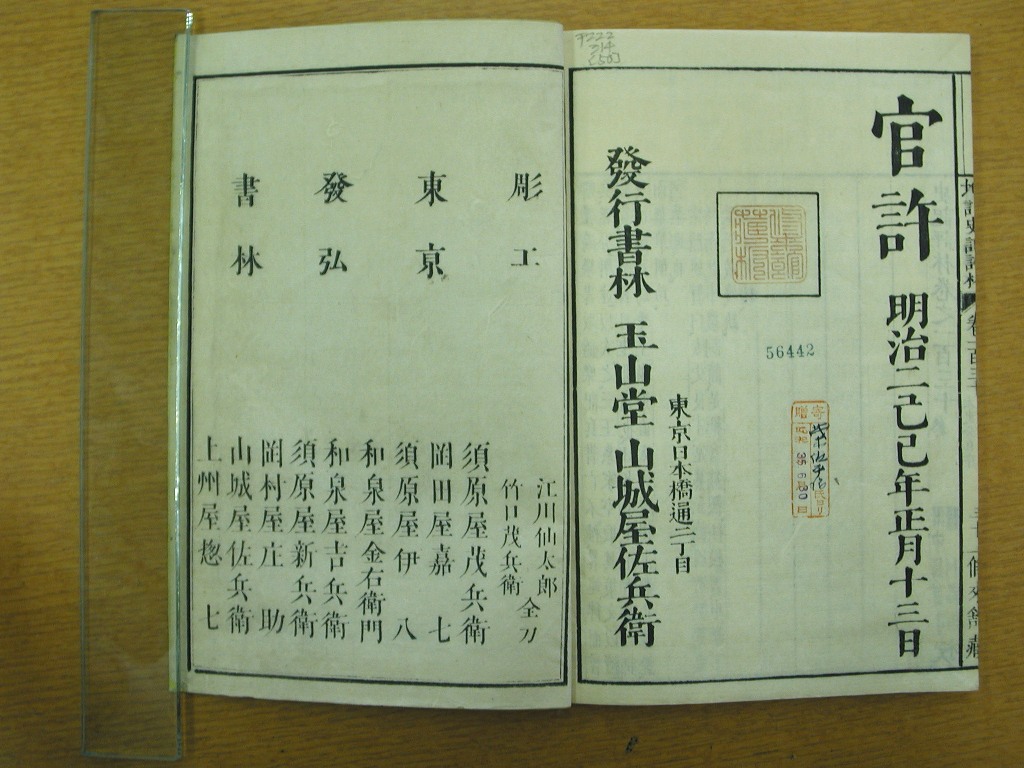 官許 明治二己巳年正月十三日
56442
35 6 30
東京日本橋通二丁目
發行書林 玉山堂 山城屋佐兵衛
彫工
江川仙太郎
竹口茂兵衛
仝刀
東京
發弘
書林
須原屋茂兵衛
岡田屋嘉七
須原屋伊八
和泉屋金右衛門
和泉屋吉兵衛
須原屋新兵衛
岡村屋庄助
山城屋佐兵衛
上州屋惣七